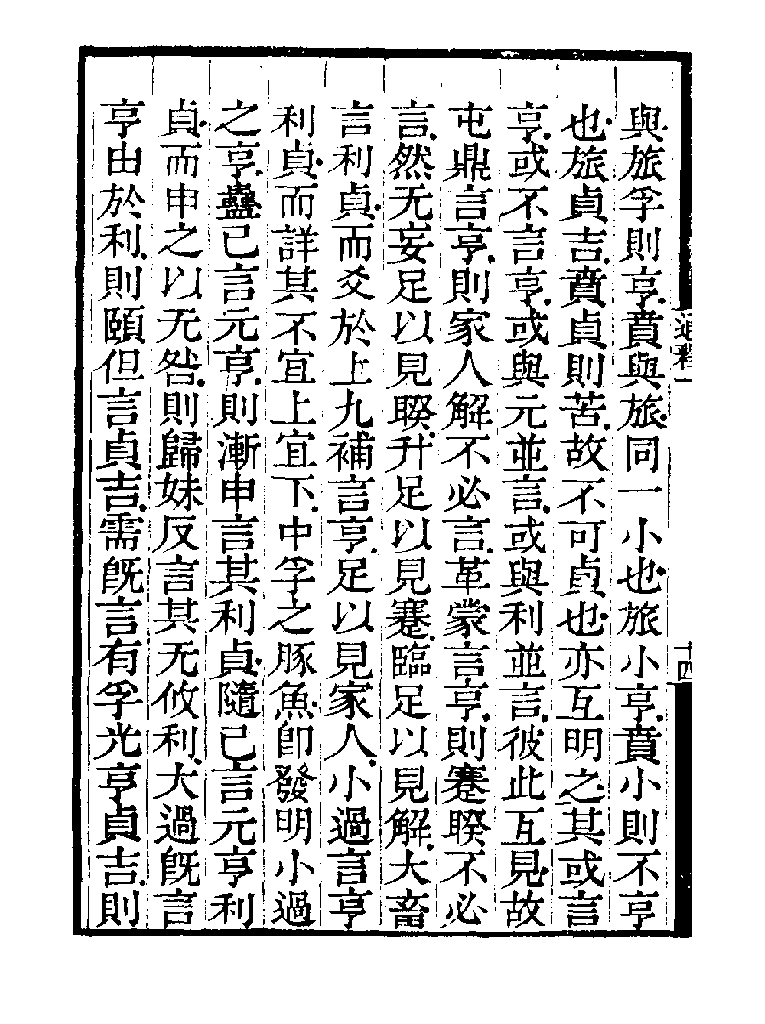 與旅孚則亨賁與旅同一小也旅小亨賁小則不亨
也旅貞吉賁貞則苦故不可貞也亦互明之其或言
亨或不言亨或與元並言或與利並言彼此互見故
屯鼎言亨則家人解不必言革蒙言亨則蹇睽不必
言然无妄足以見睽升足以見蹇臨足以見解大畜
言利貞而爻於上九補言亨足以見家人小過言亨
利貞而詳其不宜上宜下中孚之豚魚卽發明小過
之亨蠱已言元亨則漸申言其利貞隨已言元亨利
貞而申之以无咎則歸妹反言其无攸利大過旣言
亨由於利則頤但言貞吉需旣言有孚光亨貞吉則
通釋一
十四